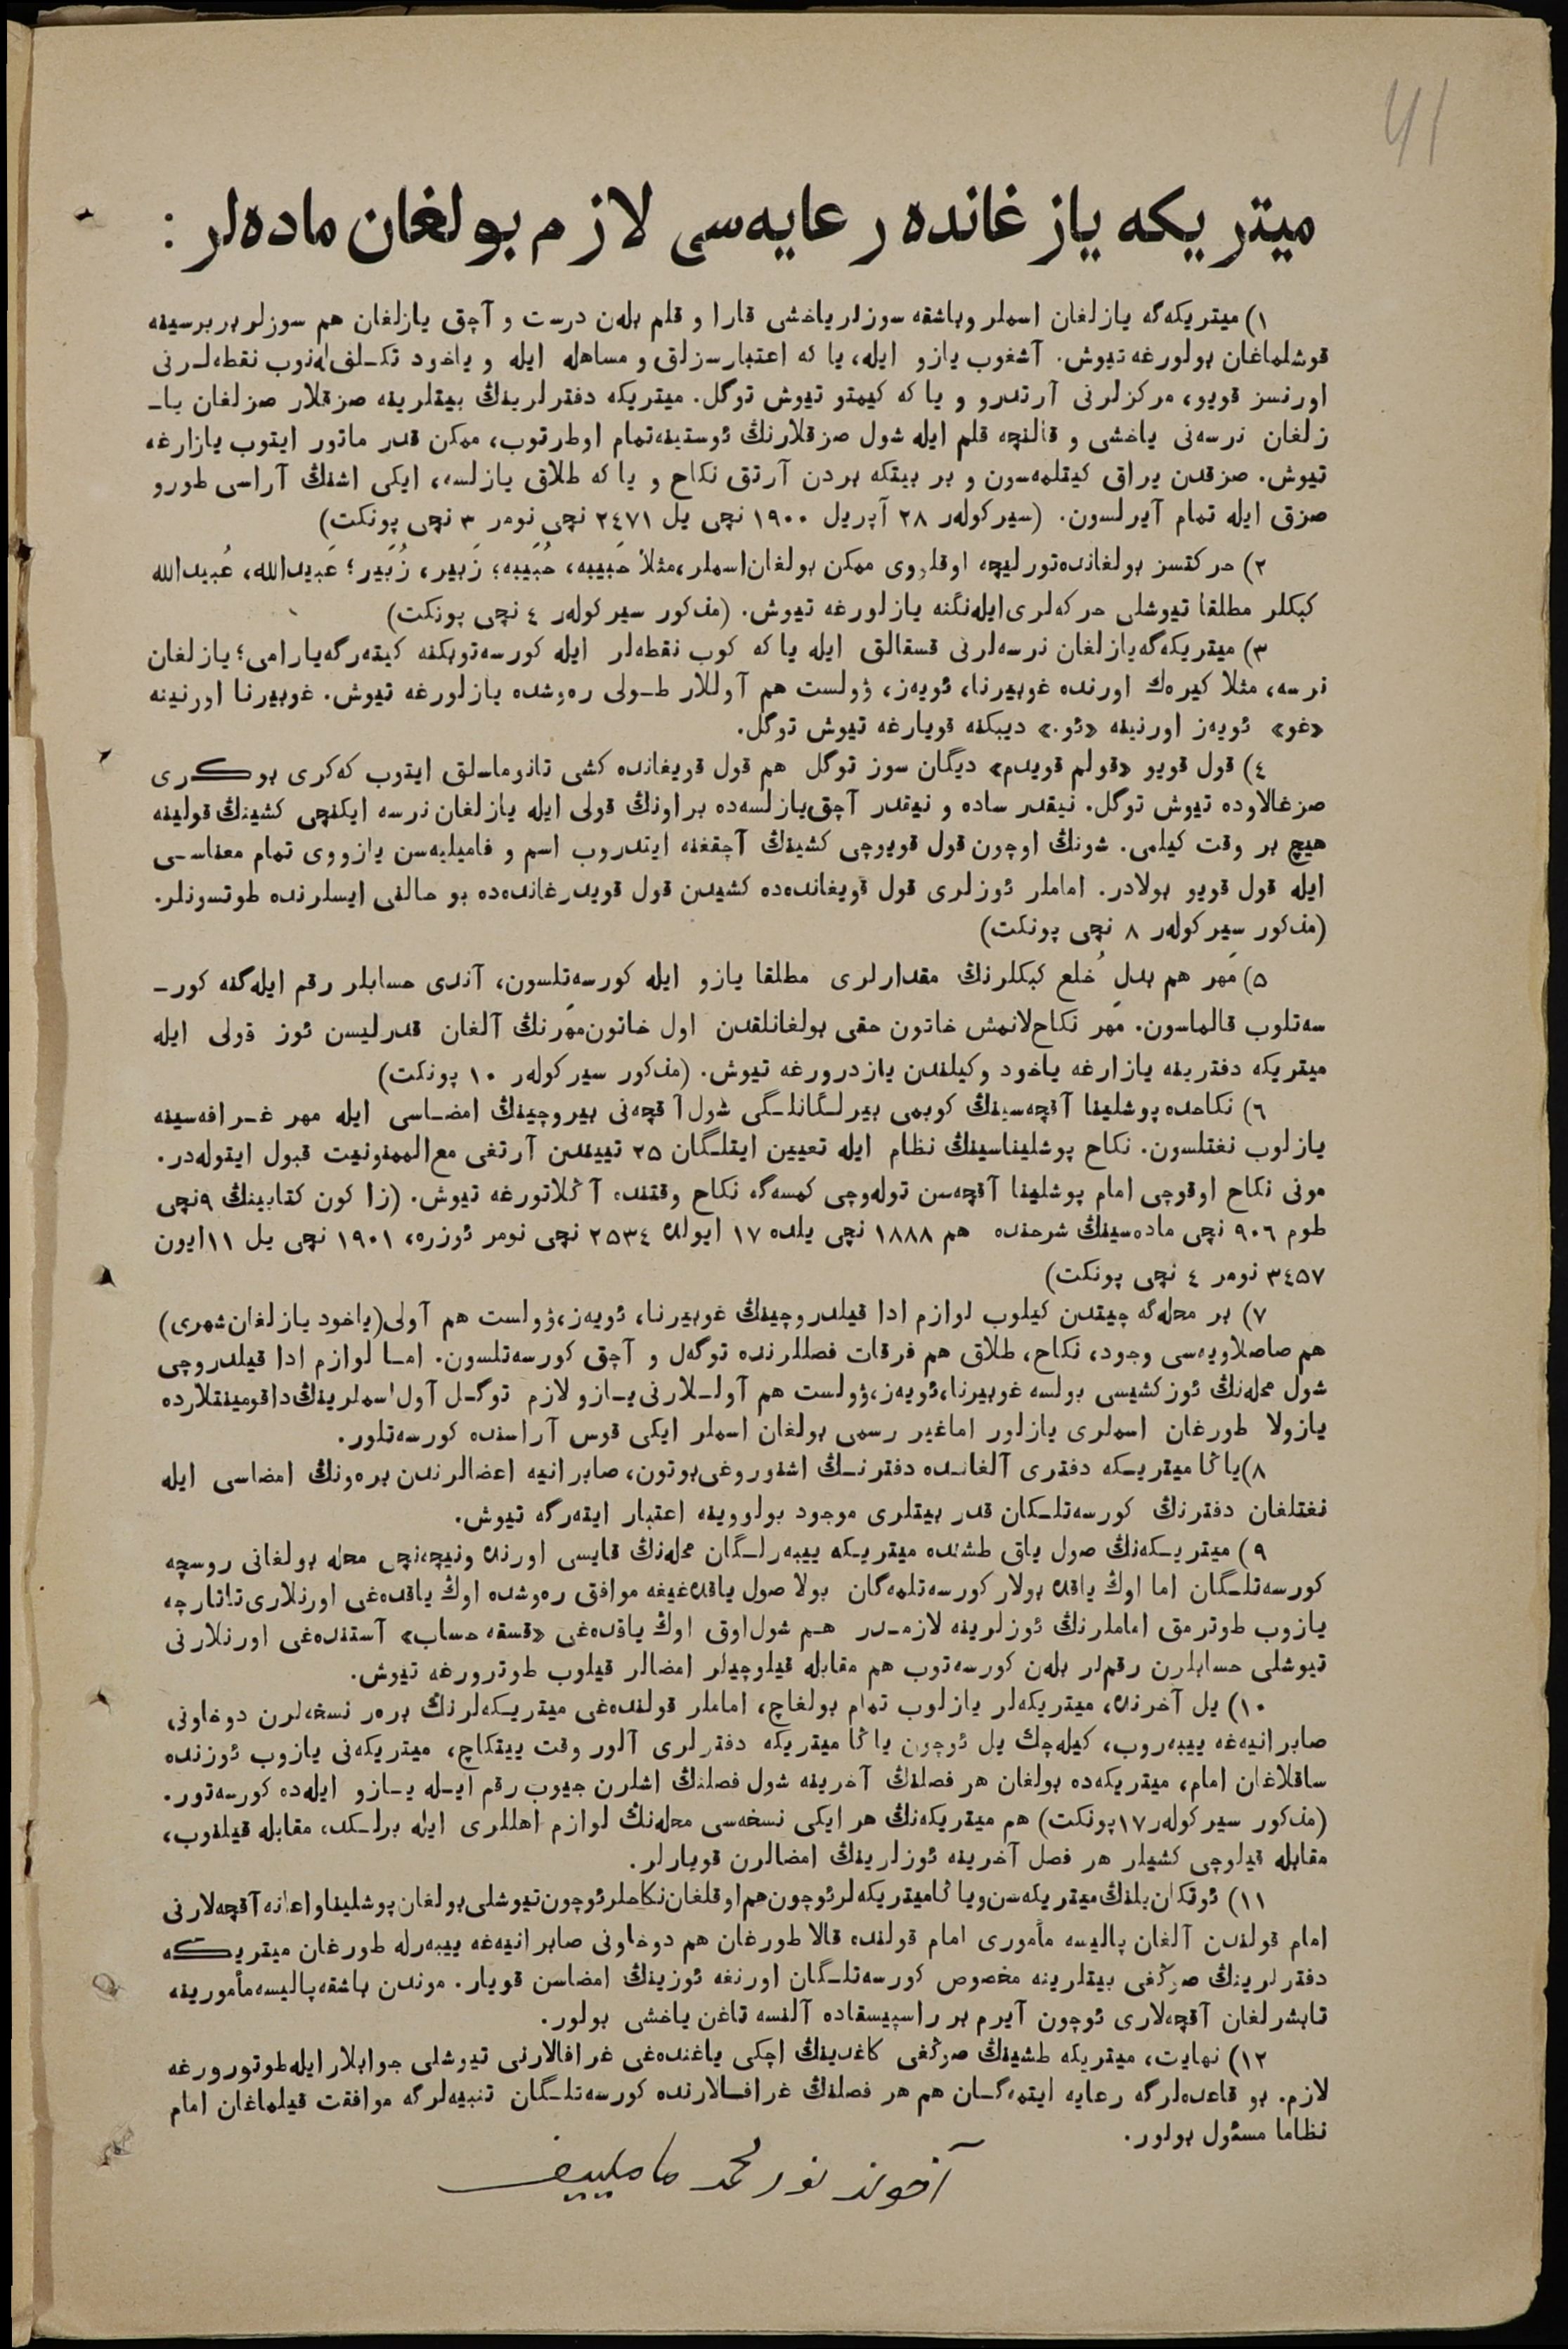 41
ميتريكه يازغانده رعايه‌سى لازم بولغان ماده‌لر :
١) ميتريكه‌گه يازلغان اسملر وباشقه سوزلر ياخشى قارا و قلم بله‌ن درست و آچق يازلغان هم سوزلر بربرسينه
قوشلماغان بولورغه تيوش. آشغوب يازو ايله، يا كه اعتبارسزلق و مساهله ايله و ياخود تكـلف له‌نوب نقطه‌لـرنى
اورنسز قويو، مركزلرنى آرتدرو و يا كه كيمتو تيوش توگل. ميتريكه دفترلرينڭ بيتلرينه صزقلار صزلغان ياـ
زلغان نرسه‌نى ياخشى و قالنچه قلم ايله شول صزقلارنڭ ئوستينه‌تمام اوطرتوب، ممكن قدر ماتور ايتوب يازارغه
تيوش. صزقدن يراق كيتلمه‌سون و بر بيتكه بردن آرتق نكاح و يا كه طلاق يازلسه، ايكى اشنڭ آراسى طورو
صزق ايله تمام آيرلسون. (سيركوله‌ر ٢٨ آپريل ١٩٠٠ نچى يل ٢٤٧١ نچى نومر ٣ نچى پونكت)
٢) حركتسز بولغانده‌تورليچه اوقلووى ممكن بولغان‌اسملر،مثلا حَبيبه، حُبَيبه؛ زَبير، زُبَير؛ عَبيدالله، عُبيدالله
كبكلر مطلقا تيوشلى حركه‌لرى‌ايله‌نگنه يازلورغه تيوش. (مذكور سيركوله‌ر ٤ نچى پونكت)
٣) ميتريكه‌گه‌يازلغان نرسه‌لرنى قسقالق ايله يا كه كوب نقطه‌لر ايله كورسه‌توبكنه كيته‌رگه‌يارامى؛ يازلغان
نرسه، مثلا كيره‌ك اورنده غوبيرنا، ئويه‌ز، ۋولست هم آوللار طـولى ره‌وشده يازلورغه تيوش. غوبيرنا اورنينه
«غو» ئويه‌ز اورنينه «ئو.» ديبكنه قويارغه تيوش توگل.
٤) قول قويو «قولم قويدم» ديگان سوز توگل هم قول قويغانده كشى تانوماسلق ايتوب كه‌كرى بوكـرى
صزغالاوده تيوش توگل. نيقدر ساده و نيقدر آچق‌يازلسه‌ده براونڭ قولى ايله يازلغان نرسه ايكنچى كشينڭ قولينه
هيچ بر وقت كيلمى. شونڭ اوچون قول قويوچى كشينڭ آچقغنه ايتدروب اسم و فاميليه‌سن يازووى تمام معناسـى
ايله قول قويو بولادر. اماملر ئوزلرى قول قويغانده‌ده كشيدن قول قويدرغانده‌ده بو حالنى ايسلرنده طوتسونلر.
(مذكور سيركوله‌ر ٨ نچى پونكت)
٥) مَهر هم بدل خُلع كبكلرنڭ مقدارلرى مطلقا يازو ايله كورسه‌تلسون، آندى حسابلر رقم ايله‌گنه كورـ
سه‌تلوب قالماسون. مَهر نكاح‌لانمش خاتون حقى بولغانلقدن اول خاتون‌مهرنڭ آلغان قدرليسن ئوز قولى ايله
ميتريكه دفترينه يازارغه ياخود وكيلندن يازدرورغه تيوش. (مذكور سيركوله‌ر ١٠ پونكت)
٦) نكاحده پوشلينا آقچه‌سينڭ كوبمى بيرلـگانلـگى شول آقچه‌نى بيروچينڭ امضـاسى ايله مهر غـرافه‌سينه
يازلوب نغتلسون. نكاح پوشليناسينڭ نظام ايله تعيين ايتلـگان ٢٥ تييندن آرتغى مع‌الممنونيت قبول ايتوله‌در.
مونى نكاح اوقوچى امام پوشلينا آقچه‌سن توله‌وچى كمسه‌گه نكاح وقتنده آڭلاتورغه تيوش. (زاكون كتابينڭ ٩نچى
طوم ٩٠٦ نچى ماده‌سينڭ شرحنده هم ١٨٨٨ نچى يلده ١٧ ايولده ٢٥٣٤ نچى نومر ئوزره، ١٩٠١ نچى يل ١١ايون
٣٤٥٧ نومر ٤ نچى پونكت)
٧) بر محله‌گه چيتدن كيلوب لوازم ادا قيلدروچينڭ غوبيرنا، ئويه‌ز،ۋولست هم آولى(ياخود يازلغان‌شهرى)
هم صاصلاويه‌سى وجود، نكاح، طلاق هم فرقات فصللرنده توگه‌ل و آچق كورسه‌تلسون. امـا لوازم ادا قيلدروچى
شول محله‌نڭ ئوز كشيسى بولسه غوبيرنا،ئويه‌ز،ۋولست هم آولـلارنى‌يـازو لازم توگـل آول‌اسملرينڭ‌داقومينتلارده
يازولا طورغان اسملرى يازلور اماغير رسمى بولغان اسملر ايكى قوس آراسنده كورسه‌تلور.
٨)ياڭا ميتريـكه دفترى آلغانـده دفترنـڭ اشنوروغى‌بوتون، صابرانيه اعضالرندن بره‌ونڭ امضاسى ايله
نغتلغان دفترنڭ كورسه‌تلـكان قدر بيتلرى موجود بولووينه اعتبار ايته‌رگه تيوش.
٩) ميتريـكه‌نڭ صول ياق طشنده ميتريـكه ييبه‌رلـگان محله‌نڭ قايسى اورنده ونيچه‌نچى محله بولغانى روسچه
كورسه‌تلـگان اما اوڭ ياقده بولار كورسه‌تلمه‌گان بولا صول ياقده‌غيغه موافق ره‌وشده اوڭ ياقده‌غى اورنلارى‌تاتارچه
يازوب طوترمق اماملرنڭ ئوزلرينه لازمـدر هـم شول‌اوق اوڭ ياقده‌غى «قسقه حساب» آستنده‌غى اورنلارنى
تيوشلى حسابلرن رقم‌لر بله‌ن كورسه‌توب هم مقابله قيلوچيلر امضالر قيلوب طوترورغه تيوش.
١٠) يل آخرنده، ميتريكه‌لر يازلوب تمام بولغاچ، اماملر قولنده‌غى ميتريـكه‌لرنڭ بره‌ر نسخه‌لرن دوخاونى
صابرانيه‌غه ييبه‌روب، كيله‌چك يل ئوچون ياڭا ميتريكه دفترلرى آلور وقت ييتكاچ، ميتريكه‌نى يازوب ئوزنده
ساقلاغان امام، ميتريكه‌ده بولغان هر فصلنڭ آخرينه شول فصلنڭ اشلرن جيوب رقم ايـله يـازو ايله‌ده كورسه‌تور.
(مذكور سيركوله‌ر١٧پونكت) هم ميتريكه‌نڭ هر ايكى نسخه‌سى محله‌نڭ لوازم اهللرى ايله برلـكده مقابله قيلنوب،
مقابله قيلوچى كشيلر هر فصل آخرينه ئوزلرينڭ امضالرن قويارلر.
١١) ئوتكان‌يلنڭ‌ميتريكه‌سن‌وياڭاميتريكه‌لرئوچون‌هم‌اوقلغان‌نكاحلرئوچون‌تيوشلى‌بولغان‌پوشليناواعانه آقچه‌لارنى
امام قولندن آلغان پاليسه مأمورى امام قولنده قالا طورغان هم دوخاونى صابرانيه‌غه ييبه‌رله طورغان ميتريـكه
دفترلرينڭ صوڭغى بيتلرينه مخصوص كورسه‌تلـگان اورنغه ئوزينڭ امضاسن قويار. موندن باشقه‌پاليسه‌مأمورينه
تابشرلغان آقچه‌لارى ئوچون آيرم بر راسپيسقاده آلنسه تاغن ياخشى بولور.
١٢) نهايت، ميتريكه طشينڭ صوڭغى كاغدينڭ اچكى ياغنده‌غى غرافالارنى تيوشلى جوابلار ايله‌طوتورورغه
لازم. بو قاعده‌لرگه رعايه ايتمه‌گـان هم هر فصلنڭ غرافـالارنده كورسه‌تلـگان تنبيه‌لرگه موافقت قيلماغان امام
نظاما مسئول بولور.
آخوند نورمحمد ماملييف